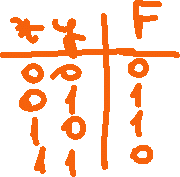 x y F
0 0 0
0 1 1
1 0 1
1 1 0